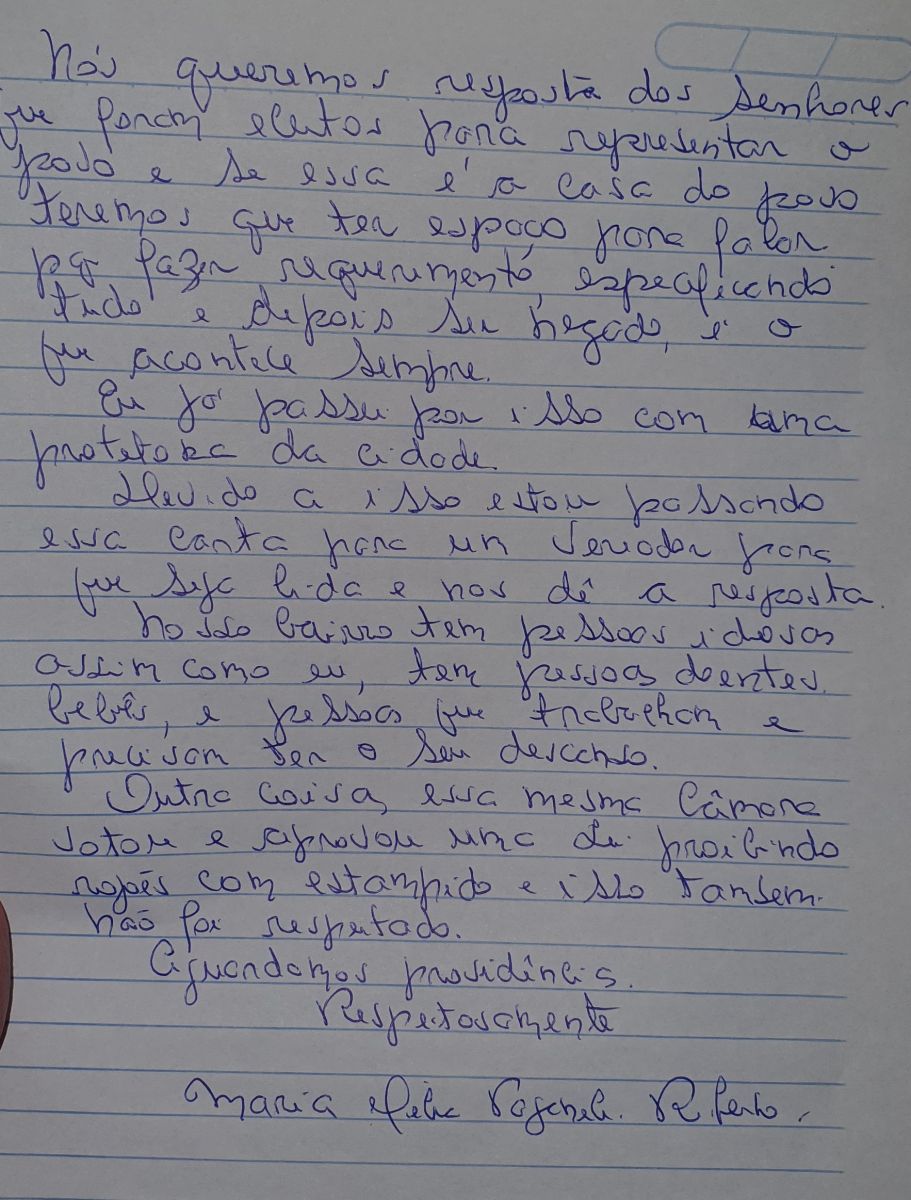 Nós queremos resposta dos senhores
que foram eleitos para representar o
povo e se essa é a casa do povo
teremos que ter espaço para falar
pq fazer requerimento, especificando
tudo e depois ser negado, é o
que acontece sempre.
Eu já passei por isso com uma
protetora da cidade.
Devido a isso estou passando
essa carta para um vereador para
que seja lida e nos dê a resposta.
Nosso bairro tem pessoas idosas
assim como eu, tem pessoas doentes,
bebês, e pessoas que trabalham e
precisam ter o seu descanso.
Outra coisa, essa mesma Câmara
votou e aprovou uma lei proibindo
rojões com estampido e isso também
não foi respeitado.
Aguardamos providências.
Respeitosamente
Maria